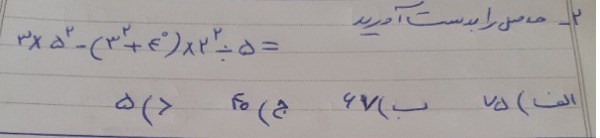 ۲- حاصل را بدست آورید
۳×۵²-(۳²+۴⁰)×۲²÷۵=
الف) ۷۵ ب) ۶۷ ج) ۴۰ د) ۵